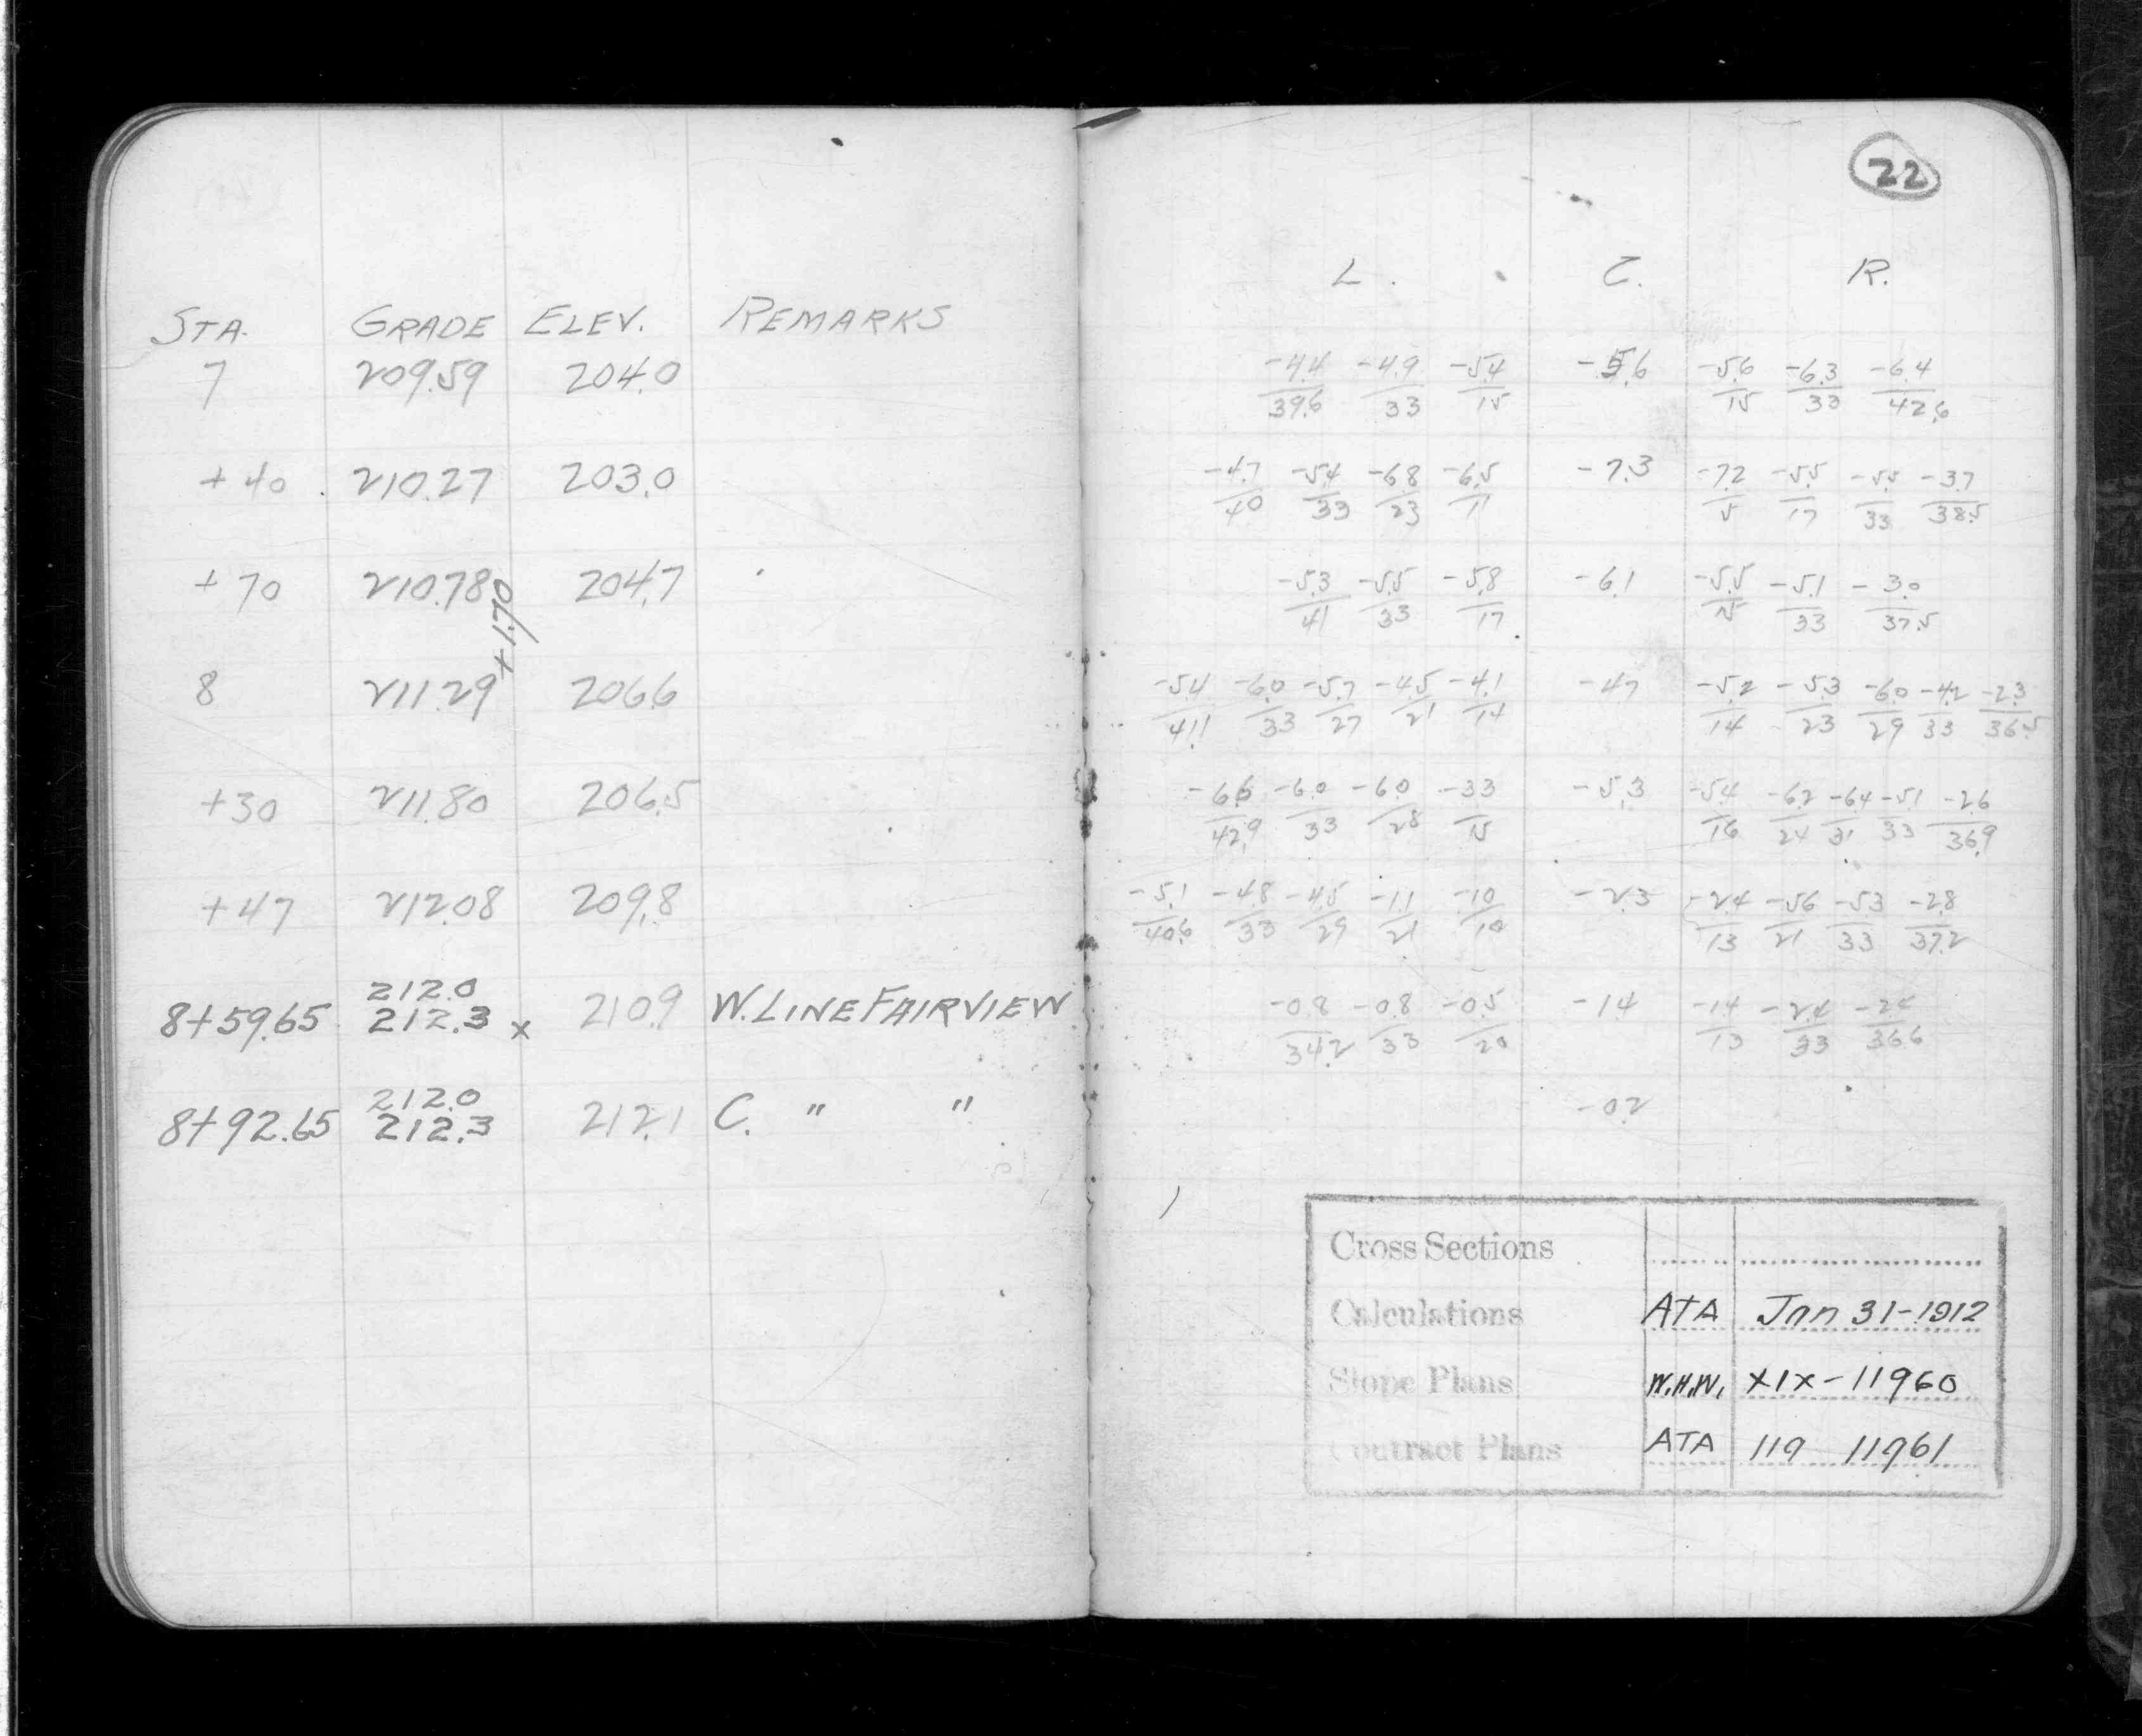 STA. GRADE ELEV. REMARKS
7 209.59 204.0
+40 210.27 203.0
+70 210.78 204.7
+1.70
8 211.29 206.6
+30 211.80 206.5
+47 212.08 209.8
212.0
8+59.65 212.3 x 210.9 W. LINE FAIRVIEW
212.0
8+92.65 212.3 212.1 C. " "
22
L. C. R.
-4.4 -4.9 -5.4 -5.6 -5.6 -6.3 -6.4
39.6 33 15 15 33 42.6
-4.7 -5.4 -6.8 -6.5 -7.3 -7.2 -5.5 -5.5 -3.7
40 33 23 11 5 17 33 38.5
-5.3 -5.5 -5.8 -6.1 -5.5 -5.1 -3.0
41 33 17 15 33 37.5
-5.4 -6.0 -5.7 -4.5 -4.1 -4.7 -5.2 -5.3 -6.0 -4.2 -2.3
41.1 33 27 21 14 14 23 29 33 36.5
-6.6 -6.0 -6.0 -3.3 -5.3 -5.4 -6.2 -6.4 -5.1 -2.6
42.9 33 28 15 16 24 31 33 36.9
-5.1 -4.8 -4.5 -1.1 -1.0 -2.3 -2.4 -5.6 -5.3 -2.8
40.6 33 29 21 10 13 21 33 37.2
-0.8 -0.8 -0.5 -1.4 -1.4 -2.4 -2.4
34.2 33 20 13 33 36.6
-0.2
Cross Sections
Calculations ATA Jan 31-1912
Slope Plans W.H.W. XIX-11960
Contract Plans ATA 119 11961